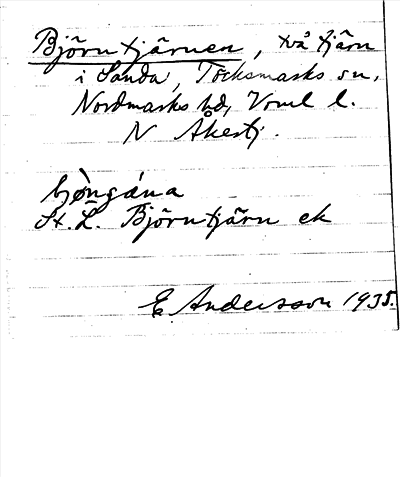 Björntjärnen, två tjärn
i Sanda, Töcksmarks sn,
Nordmarks hd, Vrml l.
N Åkestj.
bjǿngána
St. L. Björntjärn ek
E. Andersson 1935.